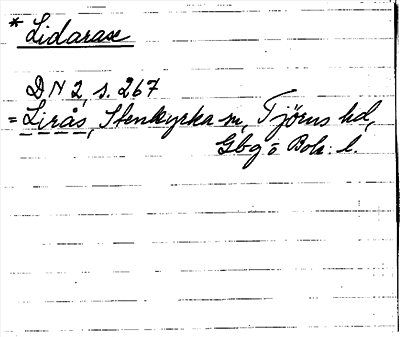 * Lidarase
DN 2, s. 267
= Lirås, Stenkyrka sn, Tjörns hd,
Gbg o Boh: l.